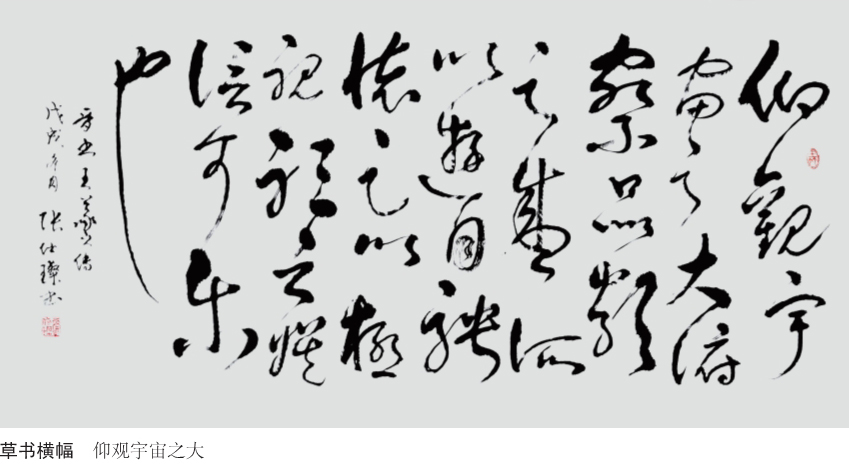 仰觀宇
宙之大俯
察品類
之盛所
以遊目騁
懷足以極
視聽之娛
信可樂
也
晋书王羲之传
戊戌 月 张仕璨书
草书横幅 仰观宇宙之大